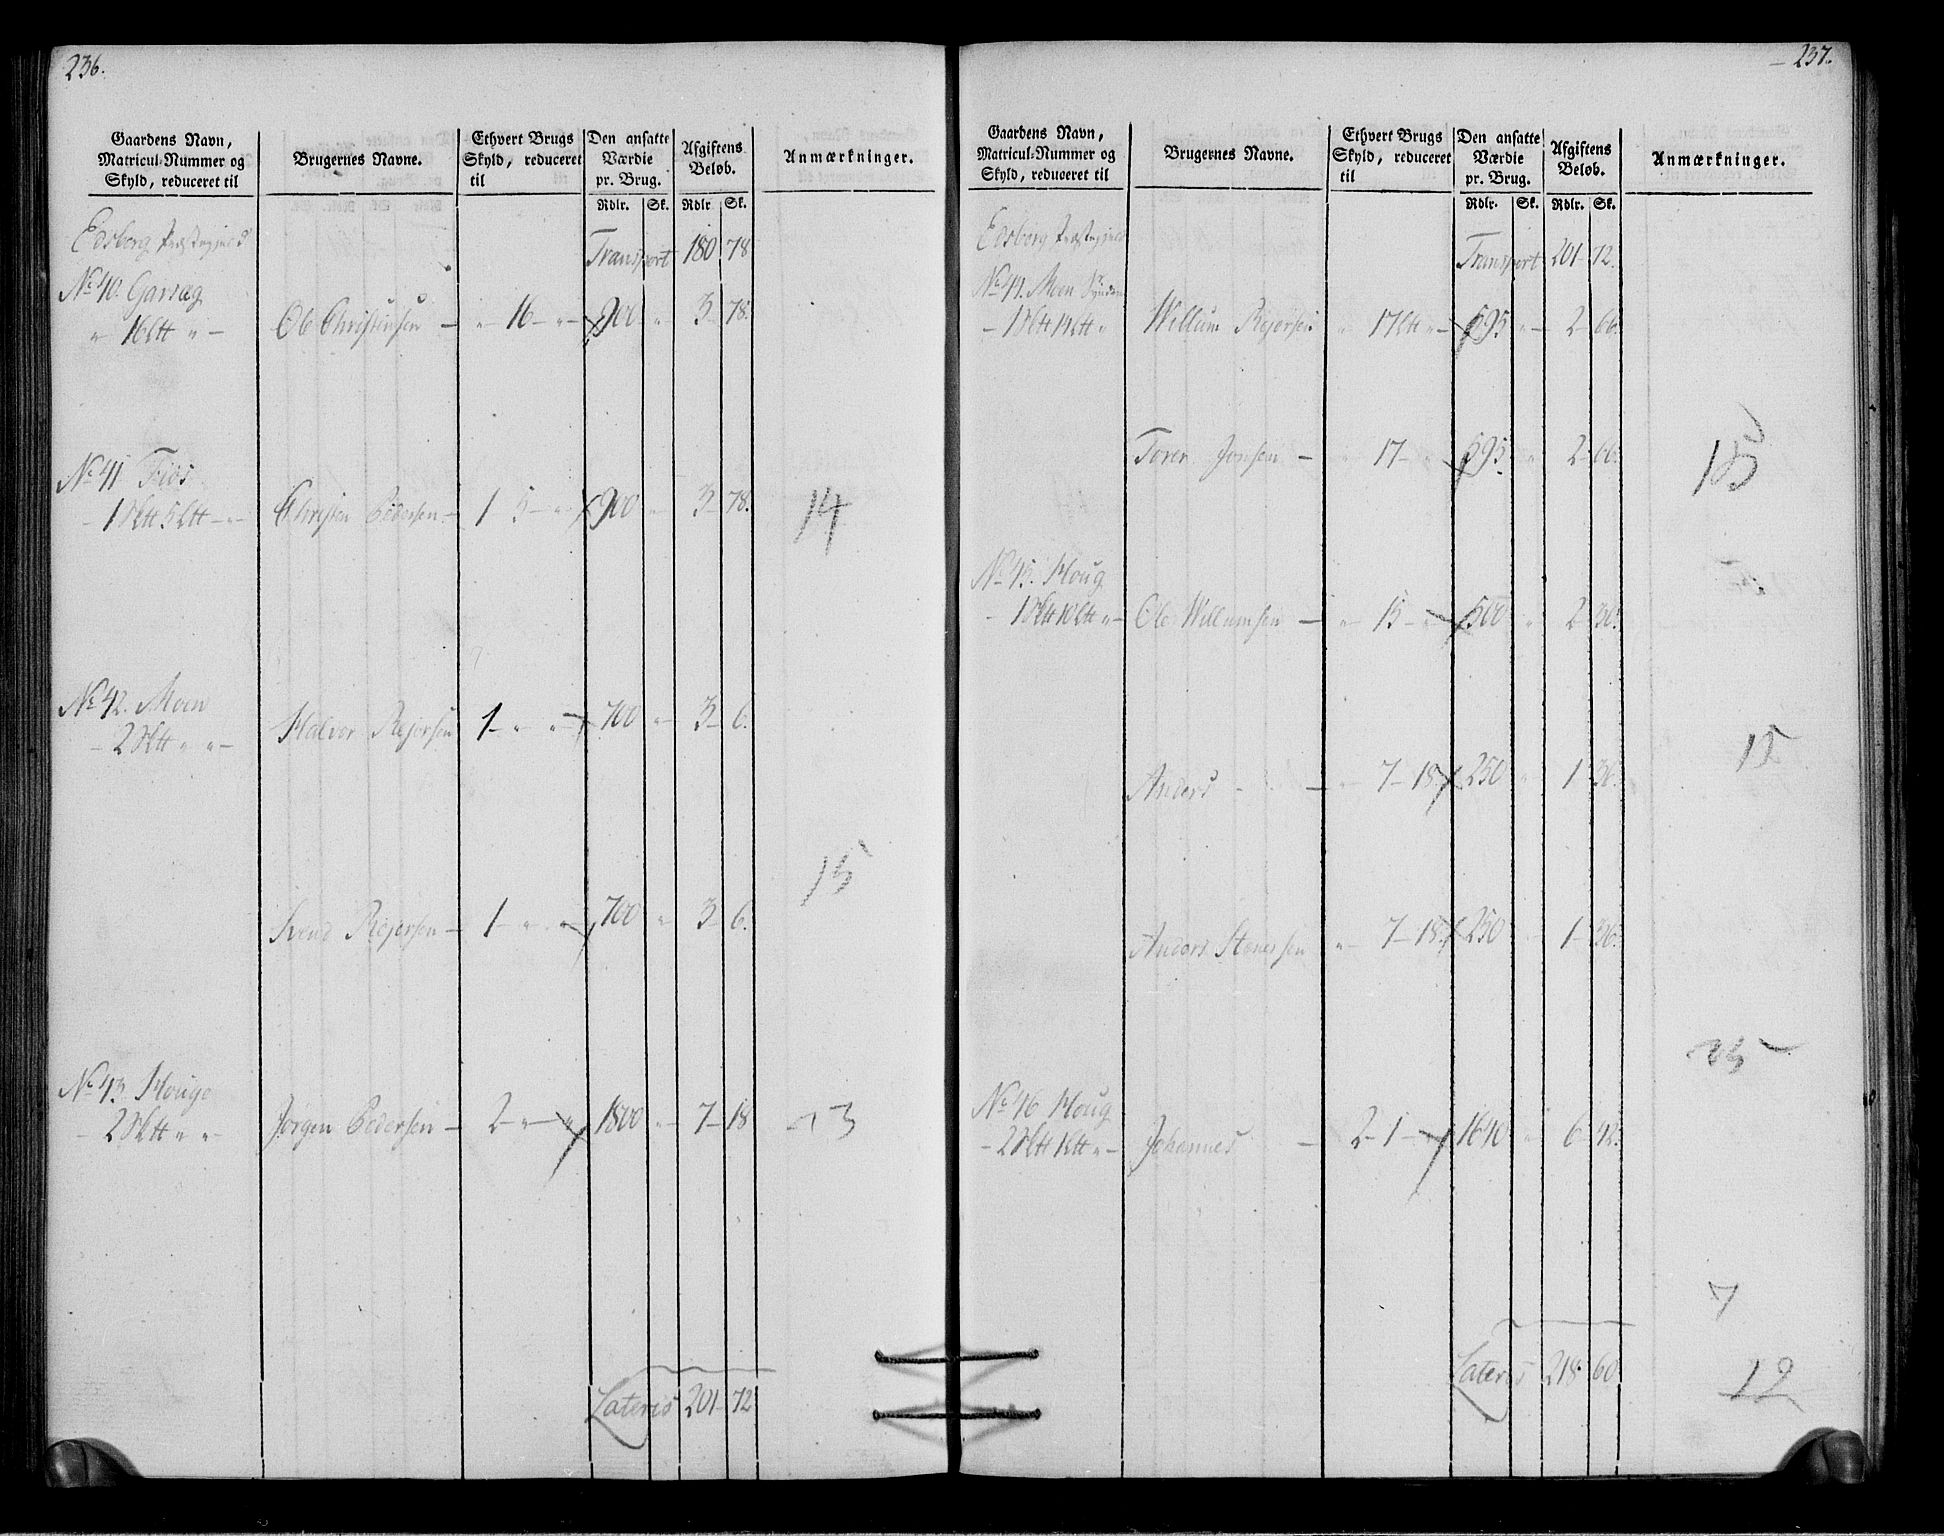 236.
Gaardens Navn, Matricul-Nummer og Skyld, reduceret til | Brugernes Navne. | Ethvert Brugs Skyld, reduceret til | Den ansatte Værdie pr. Brug. | Afgiftens Beløb. | Anmærkninger.
Rdlr. Sk. Rdlr Sk.
Edsberg Præstegield
Transport 180 78
No 40. Garræg
" 16 Ltt " — Ole Christensen — " — 16 — " — 900 " 3 — 78.
No 41 Fios
— 1 Sktt 5 Ltt — " — Christen Pedersen — 1 — 5 — " — 900 " 3 — 78.
14
No 42. Moen
— 2 Sktt " " — Halvor Rejersen 1 — " — " — 700 " 3 — 6.
15
Svend Rejersen — 1 — " — " — 700 " 3 — 6.
No 43. Houge
— 2 Sktt " " — Jørgen Pedersen — 2 — " — " 1800 " 7 — 18
13
Lateris 201 — 72
237.
Gaardens Navn, Matricul-Nummer og Skyld, reduceret til | Brugernes Navne. | Ethvert Brugs Skyld, reduceret til | Den ansatte Værdie pr. Brug. | Afgiftens Beløb. | Anmærkninger.
Rdlr. Sk. Rdlr. Sk.
Edsberg Præstegield
Transport 201 — 72.
No 44. Moen
— 1 Sktt 14 Ltt " Willum Rejersen " 17 Ltt " — 595 " — 2 — 66.
Torer Jonsen — " 17 — " 595 " 2 — 66.
15
No 45. Houg
— 1 Sktt 10 Ltt " — Ole Willumsen — " — 15 — " 500 " 2 — 30.
15
Anders — " — 7 — 18 250 " 1 — 36.
Anders Stenersen " — 7 — 18 250 " 1 — 36.
No 46 Houg
— 2 Sktt 1 Ltt " — Johannes — 2 — 1 — " 1640 " 6 — 42.
7
Lateris 218. 60
12